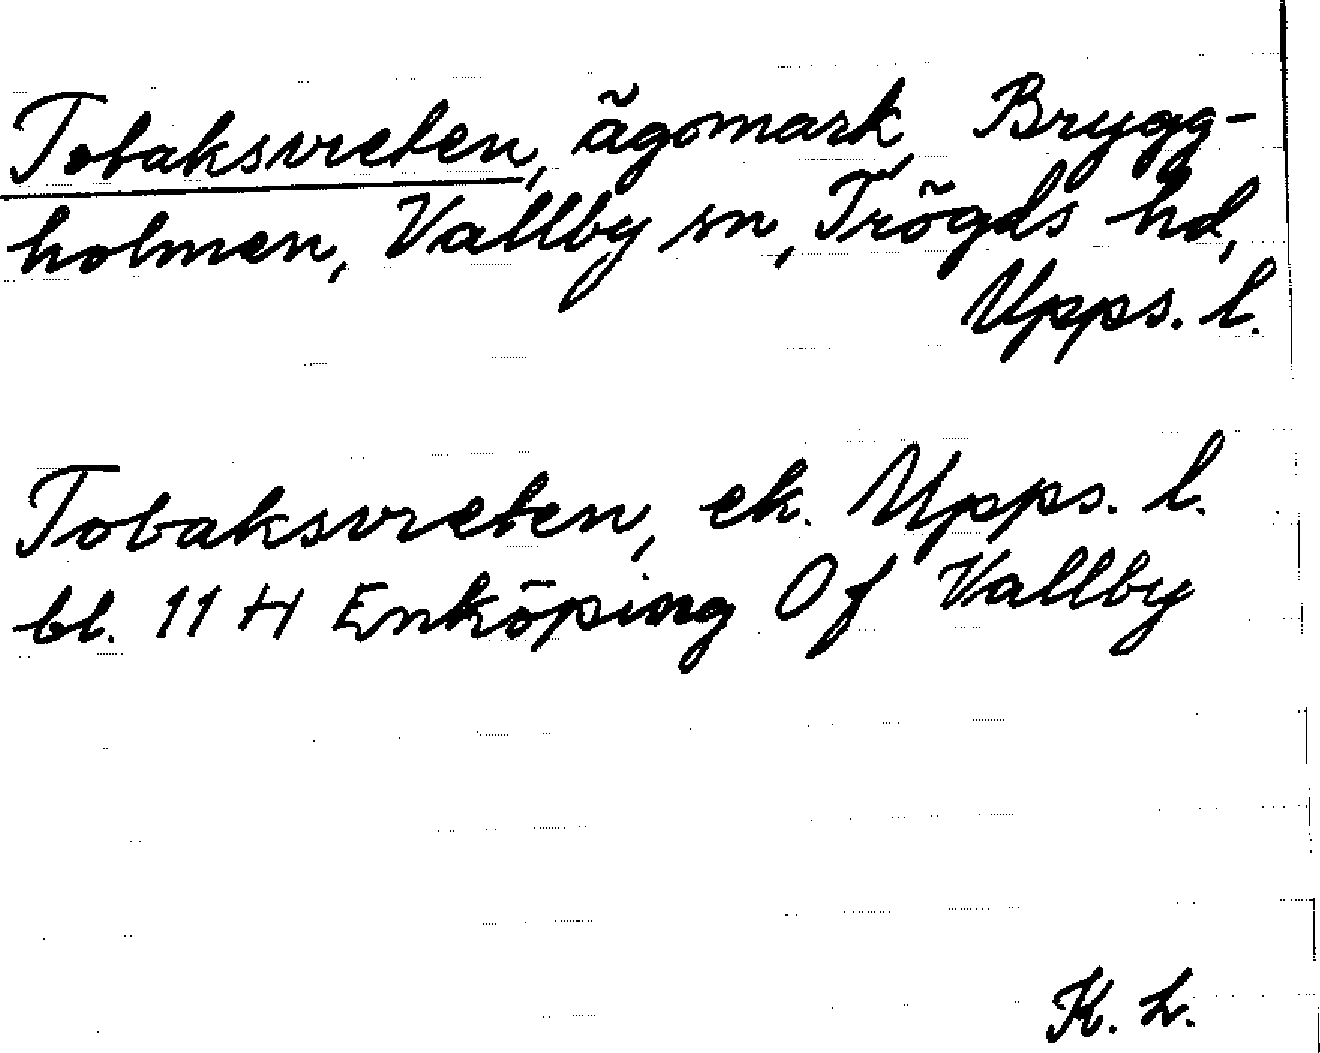 Tobaksvreten, ägomark, Brygg-
holmen, Vallby sn, Trögds hd,
Upps. l.
Tobaksvreten, ek. Upps. l.
bl. 11 H Enköping 0 f Vallby
K. L.